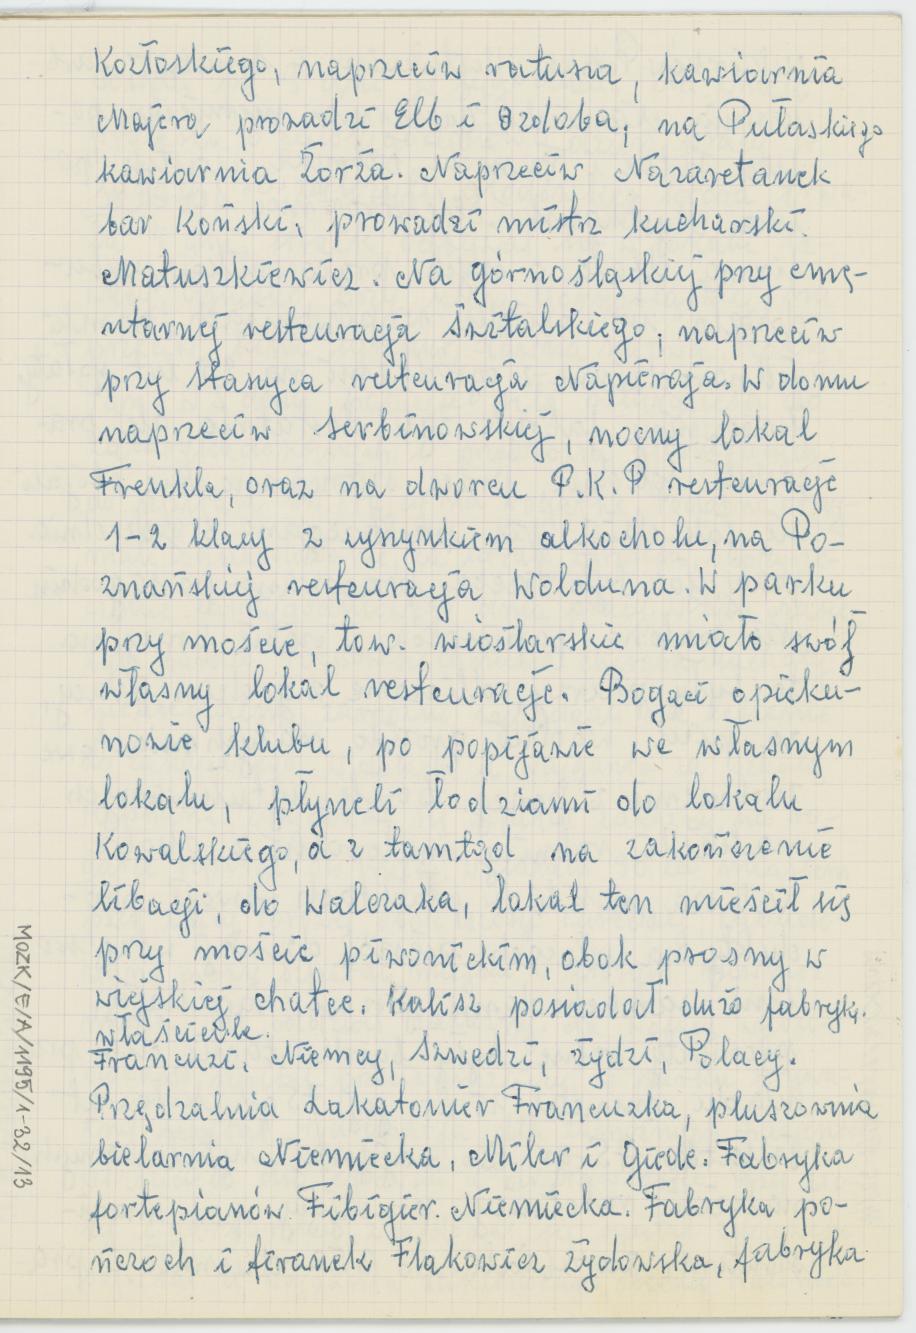 Kozłoskiego, naprzeciw ratusza, kawiarnia
Majera prowadzi Elb i Ozdoba, na Pułaskiego
kawiarnia Żorża. Naprzeciw Nazaretanek
bar Koński, prowadzi mistrz kucharski.
Matuszkiewicz. Na górnośląskiej przy cmę-
ntarnej resteuracja Świtalskiego, naprzeciw
przy Stasyca resteuracja Napieraja. W domu
naprzeciw Serbinowskiej, nocny lokal
Frenkla, oraz na dworcu P.K.P resteuracje
1-2 klasy z wyszynkiem alkocholu, na Po-
znańskiej resteuracja Wolduna. W parku
przy moście, tow. wioślarskie miało swój
własny lokal resteuracje. Bogaci opieku-
nowie klubu, po popijawie we własnym
lokalu, płyneli łodziami do lokalu
Kowalskiego, a z tamtąd na zakończenie
libacji, do Walczaka, lokal ten mieścił się
przy moście piwonickim, obok prosny w
wiejskiej chatce. Kalisz posiadał dużo fabryk.
właściciele.
Francuzi, Niemcy, Szwedzi, żydzi, Polacy.
Przędzalnia Lakatonier Francuzka, pluszownia
bielarnia Niemiecka, Miler i Giede. Fabryka
fortepianów Fibigier. Niemiecka. Fabryka po-
ńczoch i firanek Flakowicz żydowska, fabryka
MOZK/E/A/1195/1-32/13